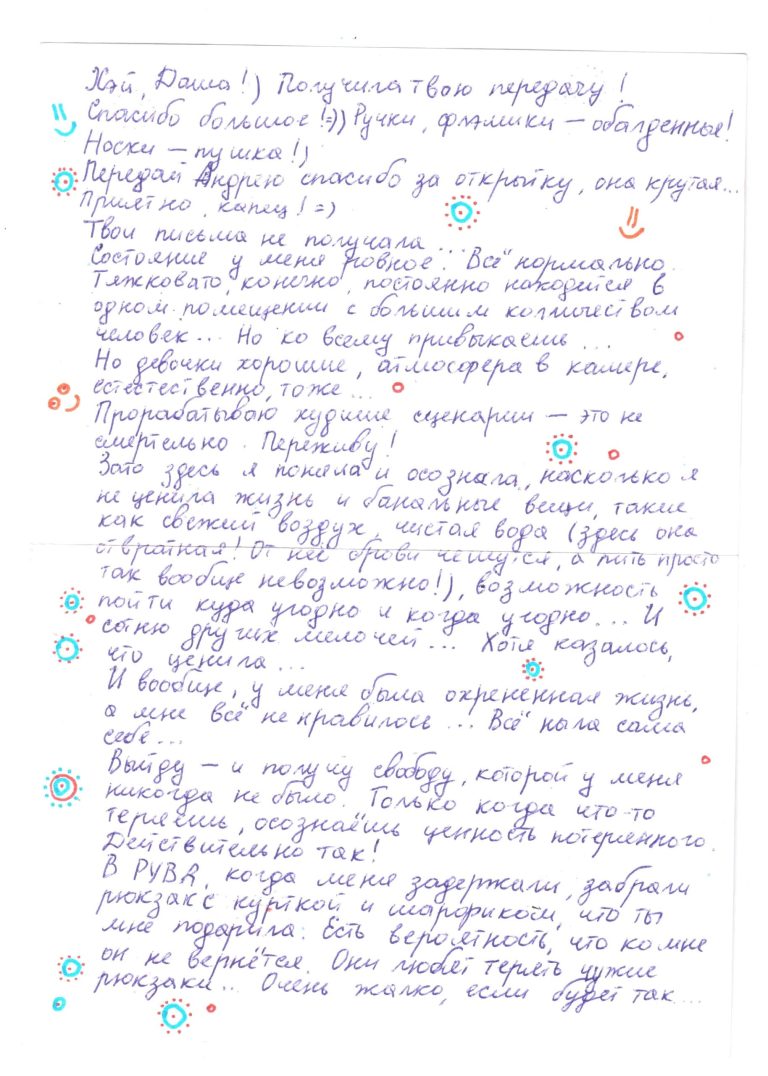 Хэй, Даша!) Получила твою передачу!
Спасибо большое!=)) Ручки, флэмики — обалденные!
Носки — пушка!)
Передай Андрею спасибо за открытку, она крутая...
Приятно, капец! =)
Твои письма не получала...
Состояние у меня ровное. Всё нормально.
Тяжковато, конечно, постоянно находится в
одном помещении с большим количеством
человек... Но ко всему привыкаешь...
Но девочки хорошие, атмосфера в камере,
естестественно, тоже...
Прорабатываю худшие сценарии — это не
смертельно. Переживу!
Зато здесь я поняла и осознала, насколько я
не ценила жизнь и банальные вещи, такие
как свежий воздух, чистая вода (здесь она
отвратная! От неё брови чешутся, а пить просто
так вообще невозможно!), возможность
пойти куда угодно и когда угодно... И
сотню других мелочей... Хотя казалось,
что ценила...
И вообще, у меня была охрененная жизнь,
а мне всё не нравилось... Всё ныла сама
себе...
Выйду — и получу свободу, которой у меня
никогда не было. Только когда что-то
теряешь, осознаёшь ценность потерянного.
Действительно так!
В РУВД, когда меня задержали, забрали
рюкзак с курткой и шарфиком, что ты
мне подарила. Есть вероятность, что ко мне
он не вернётся. Они любят терять чужие
рюкзаки.. Очень жалко, если будет так...